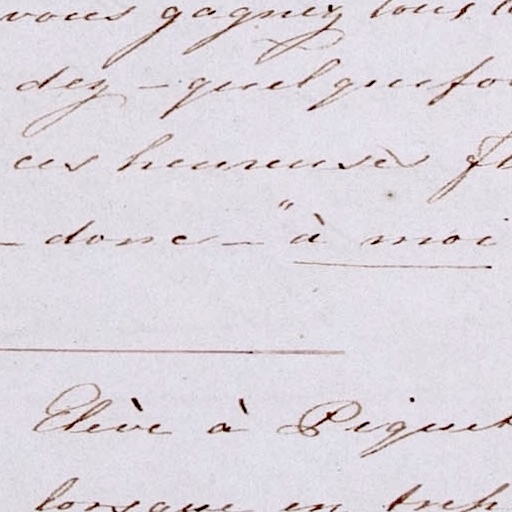 vous gagnez tous
dez - quelquefoi
ces heureuses
- donc - "à moi
Elève à Piquet
lorsque en